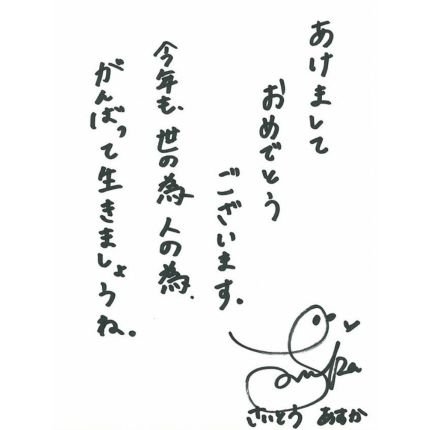 あけまして
おめでとう
ございます。
今年も、世の為 人の為、
がんばって生きましょうね。
さいとう あすか